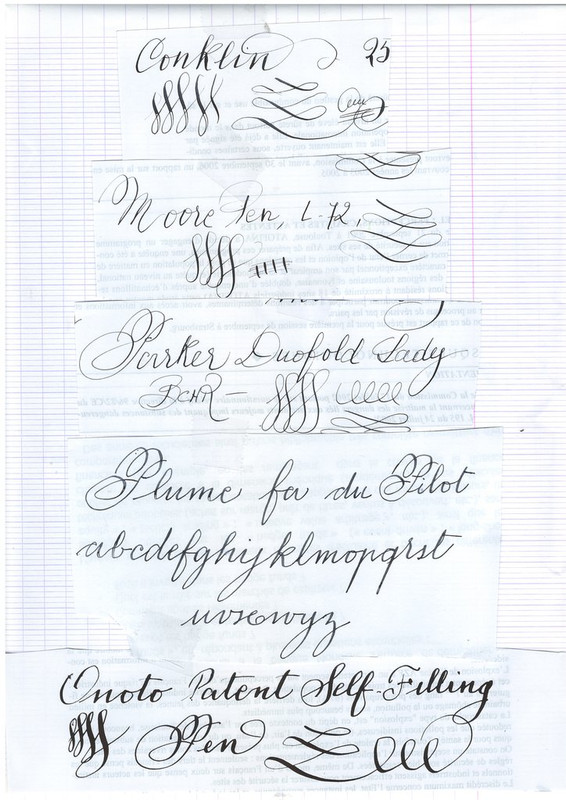 Conklin 25
Moore Pen, L-72,
Parker Duofold Lady
BCHR –
Plume fa du Pilot
abcdefghijklmopqrst
uvxwyz
Onoto Patent Self-Filling
Pen